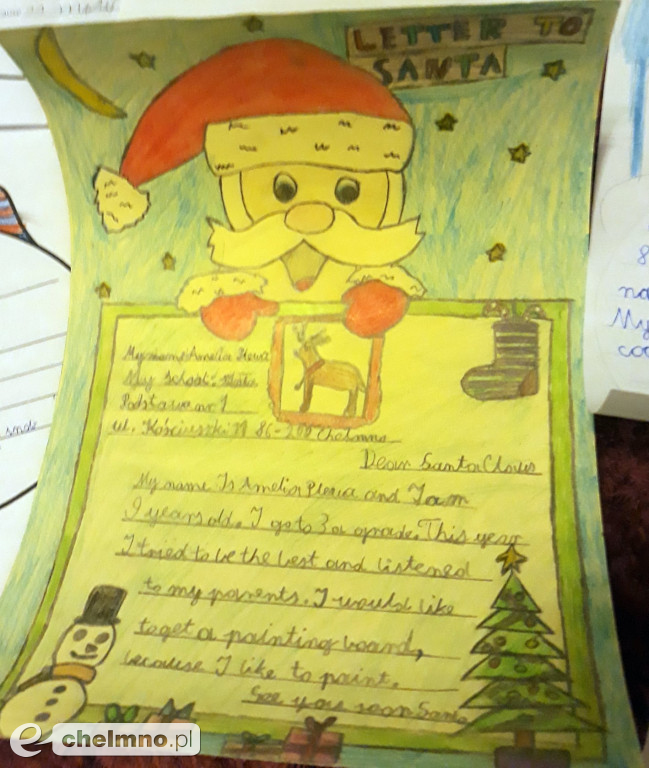 LETTER TO
SANTA
My name: Amelia
My School:
Podstawowa nr 1
ul. Kościuszki 11 86-200 Chełmno
Dear Santa Claus
My name Is Amelia and I am
9 years old. I go to 3a grade. This year
I tried to be the best and listened
to my parents. I would like
to get a painting board,
because I like to paint.
See you soon Santa
snde
8
na
My
coo
chelmno.pl